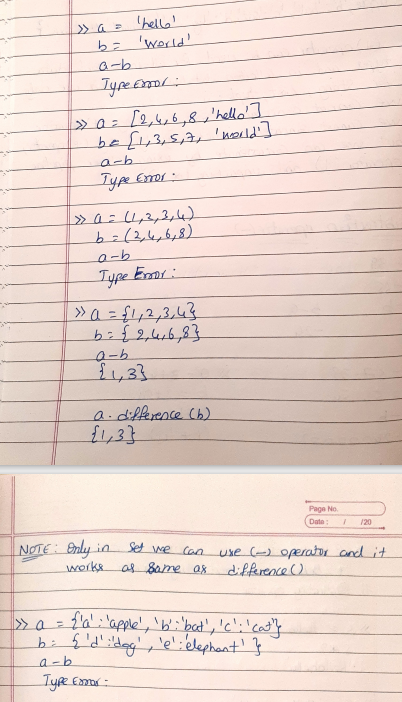 >> a = 'hello'
b = 'World'
a-b
Type Error:
>> a = [2,4,6,8,'hello']
b = [1,3,5,7, 'world']
a-b
Type Error:
>> a = (1,2,3,4)
b = (2,4,6,8)
a-b
Type Error:
>> a = {1,2,3,4}
b = { 2,4,6,8}
a-b
{1,3}
a. difference (b)
{1,3}
Page No.
Date: / /20
NOTE: Only in set we can use (-) operator and it
works as same as difference()
>> a = {'a':'apple', 'b':'bat', 'c':'cat'}
b = { 'd':'dog', 'e':'elephant' }
a-b
Type Error: